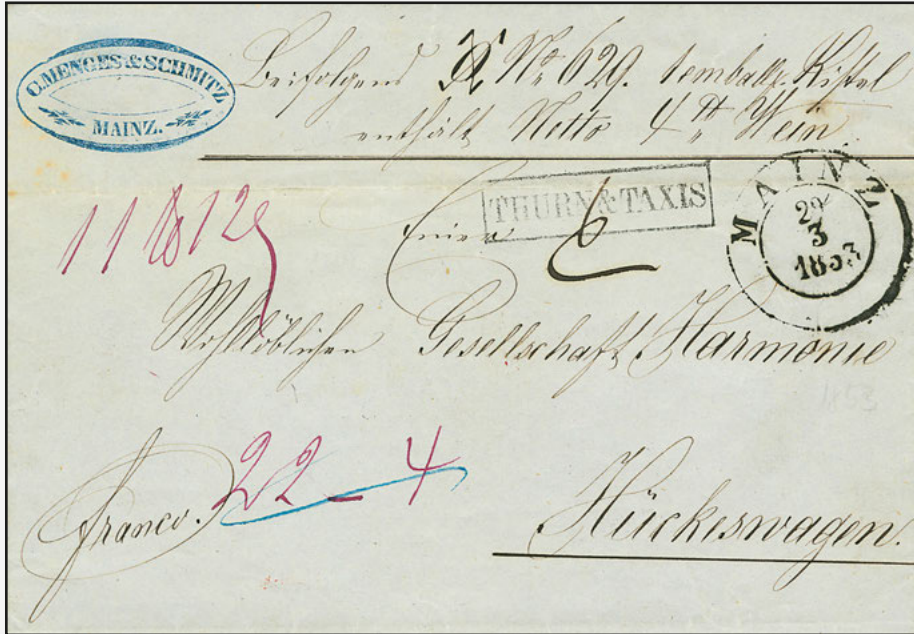 C. MENGES & SCHMITZ
MAINZ.
Beifolgend № 629. Kistel
enthält Netto 4 ℔ Wein
THURN & TAXIS
MAINZ
29
3
1853
einer 6
Wohllöblichen Gesellschaft Harmonie
1853
franco. 22 - 4
Hückeswagen.